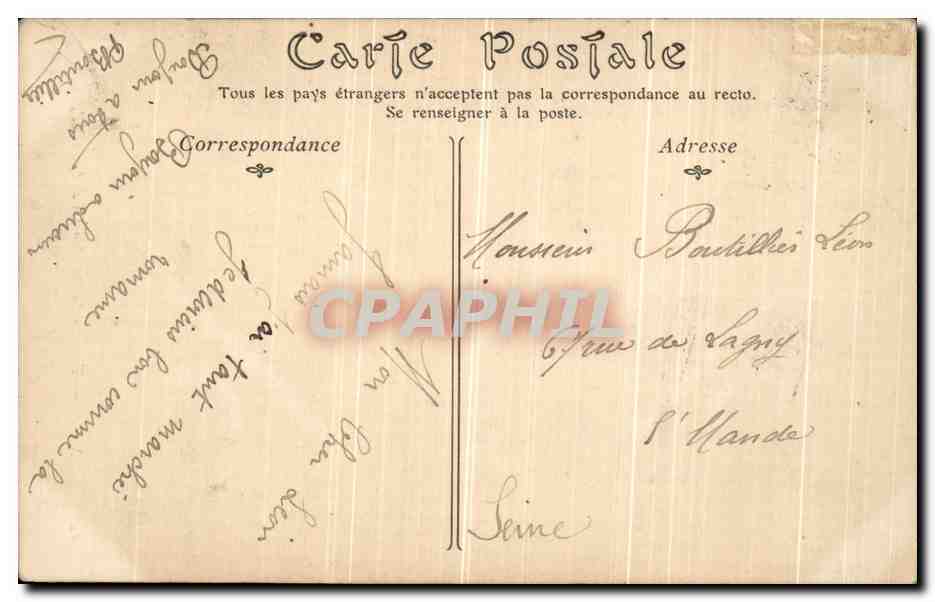 Carte Postale
Tous les pays étrangers n'acceptent pas la correspondance au recto.
Se renseigner à la poste.
Correspondance
Adresse
Mon cher Leon
Jamais j
ai tant marché
je devins bon comme la
romaine
Bonjour
Bonjour a tous
Boutilliés
Monsieur Boutilliés Léon
67 rue de Lagny
St Mande
Seine
CPAPHIL